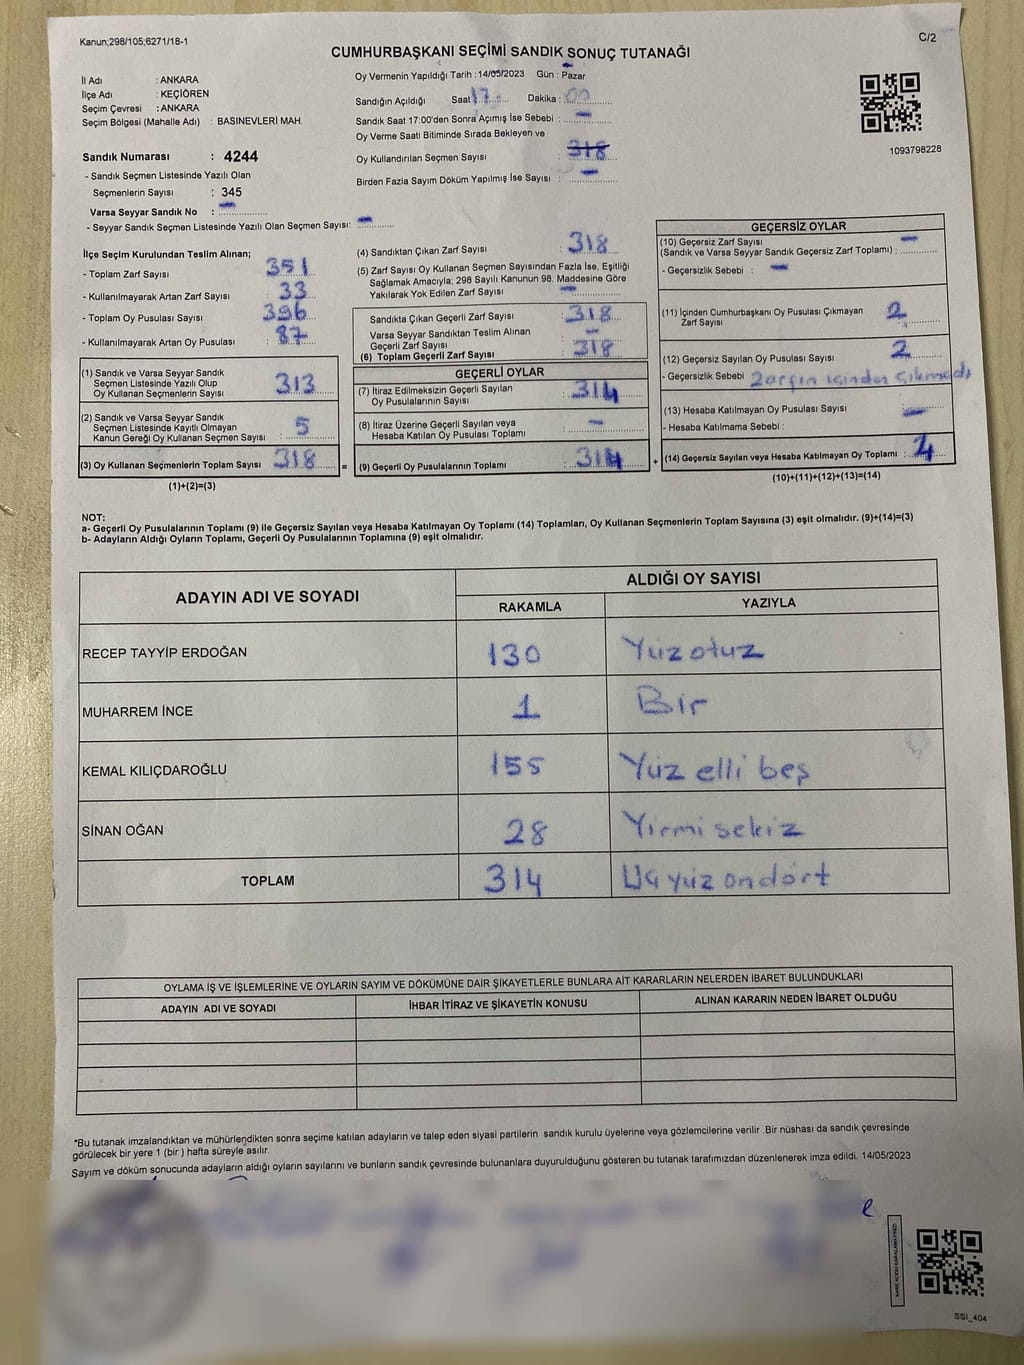 Kanun;298/105;6271/18-1
C/2
CUMHURBAŞKANI SEÇİMİ SANDIK SONUÇ TUTANAĞI
İl Adı : ANKARA
İlçe Adı : KEÇİÖREN
Seçim Çevresi : ANKARA
Seçim Bölgesi (Mahalle Adı) : BASINEVLERİ MAH.
Sandık Numarası : 4244
- Sandık Seçmen Listesinde Yazılı Olan
Seçmenlerin Sayısı : 345
Varsa Seyyar Sandık No : —
- Seyyar Sandık Seçmen Listesinde Yazılı Olan Seçmen Sayısı: —
Oy Vermenin Yapıldığı Tarih : 14/05/2023 Gün : Pazar
Sandığın Açıldığı Saat 17 Dakika : 00
Sandık Saat 17:00'den Sonra Açımış İse Sebebi : —
Oy Verme Saati Bitiminde Sırada Bekleyen ve
Oy Kullandırılan Seçmen Sayısı : 318
Birden Fazla Sayım Döküm Yapılmış İse Sayısı : —
1093798228
İlçe Seçim Kurulundan Teslim Alınan;
- Toplam Zarf Sayısı : 351
- Kullanılmayarak Artan Zarf Sayısı : 33
- Toplam Oy Pusulası Sayısı : 396
- Kullanılmayarak Artan Oy Pusulası : 87
(1) Sandık ve Varsa Seyyar Sandık
Seçmen Listesinde Yazılı Olup
Oy Kullanan Seçmenlerin Sayısı : 313
(2) Sandık ve Varsa Seyyar Sandık
Seçmen Listesinde Kayıtlı Olmayan
Kanun Gereği Oy Kullanan Seçmen Sayısı : 5
(3) Oy Kullanan Seçmenlerin Toplam Sayısı : 318 =
(1)+(2)=(3)
(4) Sandıktan Çıkan Zarf Sayısı : 318
(5) Zarf Sayısı Oy Kullanan Seçmen Sayısından Fazla İse, Eşitliği
Sağlamak Amacıyla; 298 Sayılı Kanunun 98. Maddesine Göre
Yakılarak Yok Edilen Zarf Sayısı : —
Sandıkta Çıkan Geçerli Zarf Sayısı : 318
Varsa Seyyar Sandıktan Teslim Alınan
Geçerli Zarf Sayısı : —
(6) Toplam Geçerli Zarf Sayısı : 318
GEÇERLİ OYLAR
(7) İtiraz Edilmeksizin Geçerli Sayılan
Oy Pusulalarının Sayısı : 314
(8) İtiraz Üzerine Geçerli Sayılan veya
Hesaba Katılan Oy Pusulası Toplamı : —
(9) Geçerli Oy Pusulalarının Toplamı : 314 +
GEÇERSİZ OYLAR
(10) Geçersiz Zarf Sayısı : —
(Sandık ve Varsa Seyyar Sandık Geçersiz Zarf Toplamı) :
- Geçersizlik Sebebi : —
(11) İçinden Cumhurbaşkanı Oy Pusulası Çıkmayan
Zarf Sayısı : 2
(12) Geçersiz Sayılan Oy Pusulası Sayısı : 2
- Geçersizlik Sebebi : 2 zarfın içinden çıkmadı
(13) Hesaba Katılmayan Oy Pusulası Sayısı : —
- Hesaba Katılmama Sebebi :
(14) Geçersiz Sayılan veya Hesaba Katılmayan Oy Toplamı : 4
(10)+(11)+(12)+(13)=(14)
NOT:
a- Geçerli Oy Pusulalarının Toplamı (9) ile Geçersiz Sayılan veya Hesaba Katılmayan Oy Toplamı (14) Toplamları, Oy Kullanan Seçmenlerin Toplam Sayısına (3) eşit olmalıdır. (9)+(14)=(3)
b- Adayların Aldığı Oyların Toplamı, Geçerli Oy Pusulalarının Toplamına (9) eşit olmalıdır.
ADAYIN ADI VE SOYADI
ALDIĞI OY SAYISI
RAKAMLA YAZIYLA
RECEP TAYYİP ERDOĞAN 130 Yüz otuz
MUHARREM İNCE 1 Bir
KEMAL KILIÇDAROĞLU 155 Yüz elli beş
SİNAN OĞAN 28 Yirmi sekiz
TOPLAM 314 Üç yüz on dört
OYLAMA İŞ VE İŞLEMLERİNE VE OYLARIN SAYIM VE DÖKÜMÜNE DAİR ŞİKAYETLERLE BUNLARA AİT KARARLARIN NELERDEN İBARET BULUNDUKLARI
ADAYIN ADI VE SOYADI İHBAR İTİRAZ VE ŞİKAYETİN KONUSU ALINAN KARARIN NEDEN İBARET OLDUĞU
*Bu tutanak imzalandıktan ve mühürlendikten sonra seçime katılan adayların ve talep eden siyasi partilerin sandık kurulu üyelerine veya gözlemcilerine verilir .Bir nüshası da sandık çevresinde
görülecek bir yere 1 (bir ) hafta süreyle asılır.
Sayım ve döküm sonucunda adayların aldığı oyların sayılarını ve bunların sandık çevresinde bulunanlara duyurulduğunu gösteren bu tutanak tarafımızdan düzenlenerek imza edildi. 14/05/2023
SSI_404